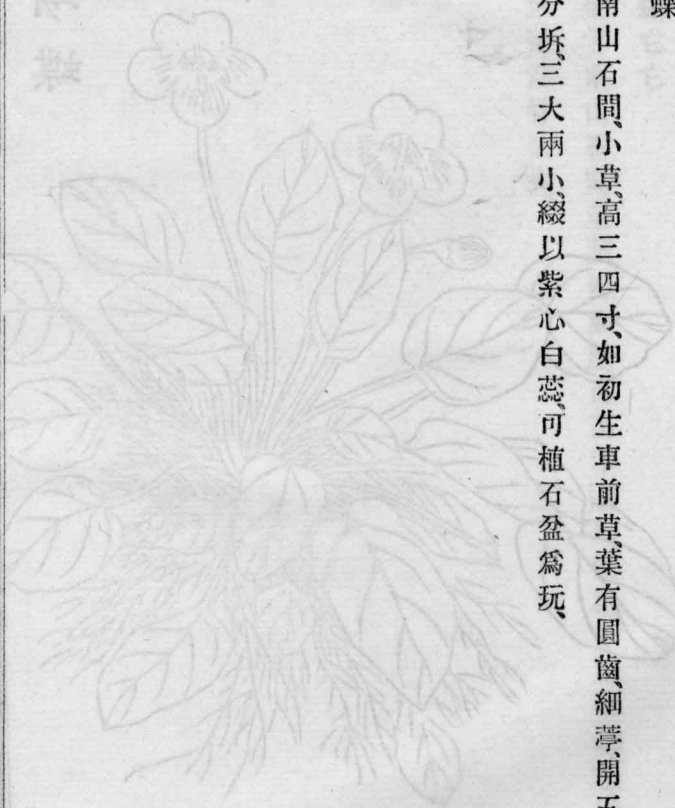 蝶
南山石間、小草、高三四寸、如初生車前草、葉有圓齒、細葶、開五
分坼、三大兩小、綴以紫心白蕊、可植石盆爲玩、